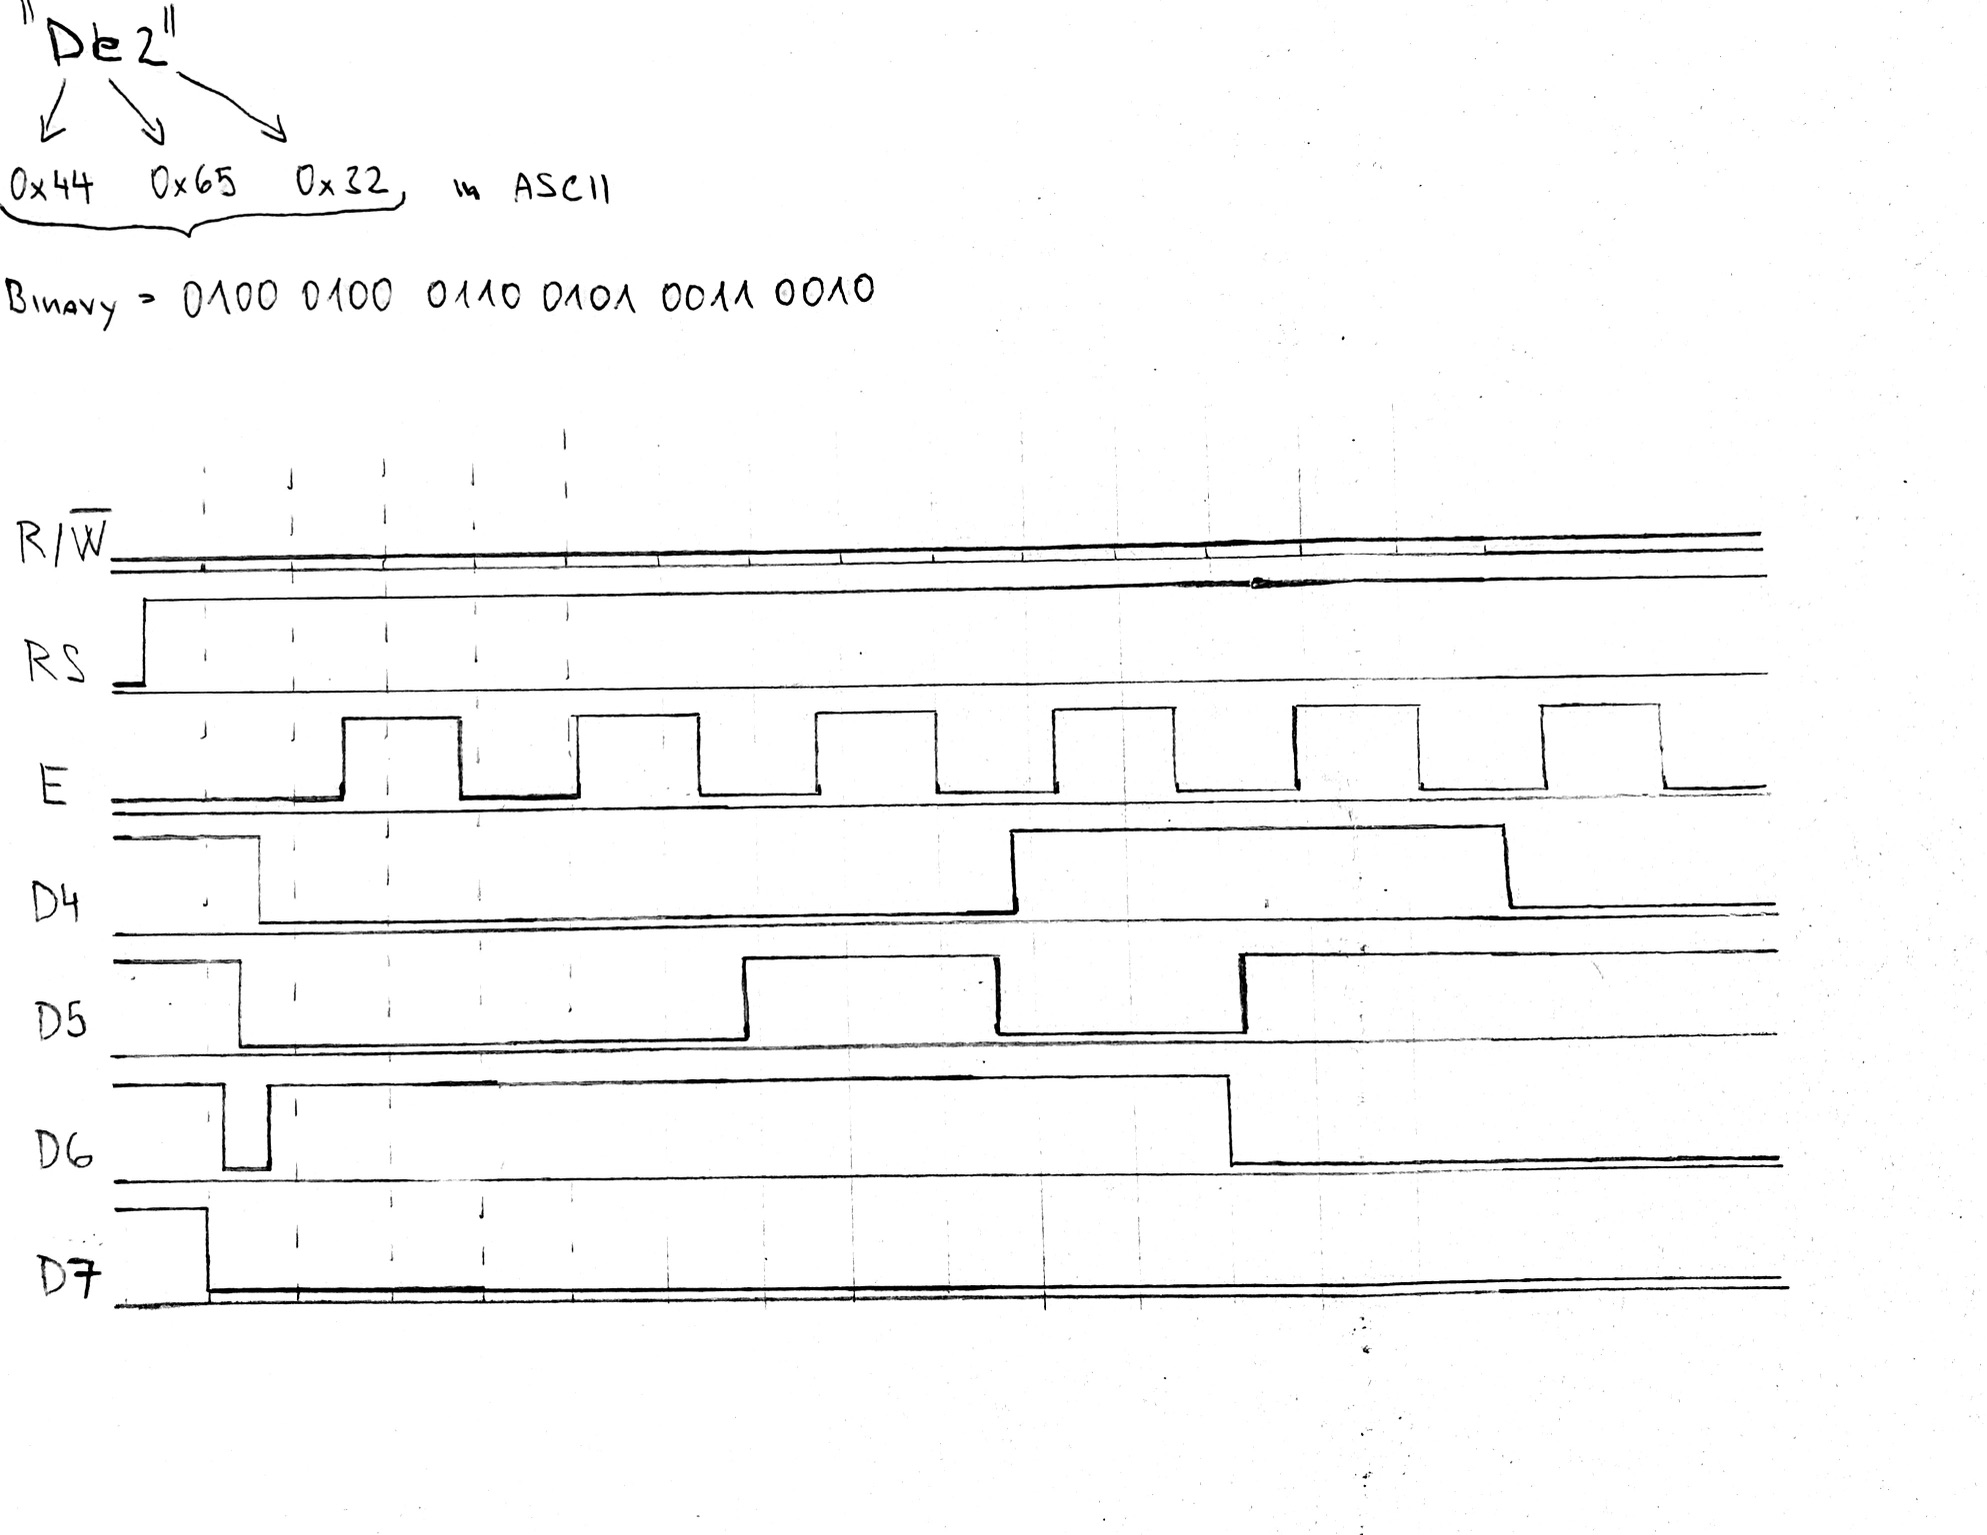 "De2"
0x44 0x65 0x32, in ASCII
Binary = 0100 0100 0110 0101 0011 0010
R/W̅
RS
E
D4
D5
D6
D7